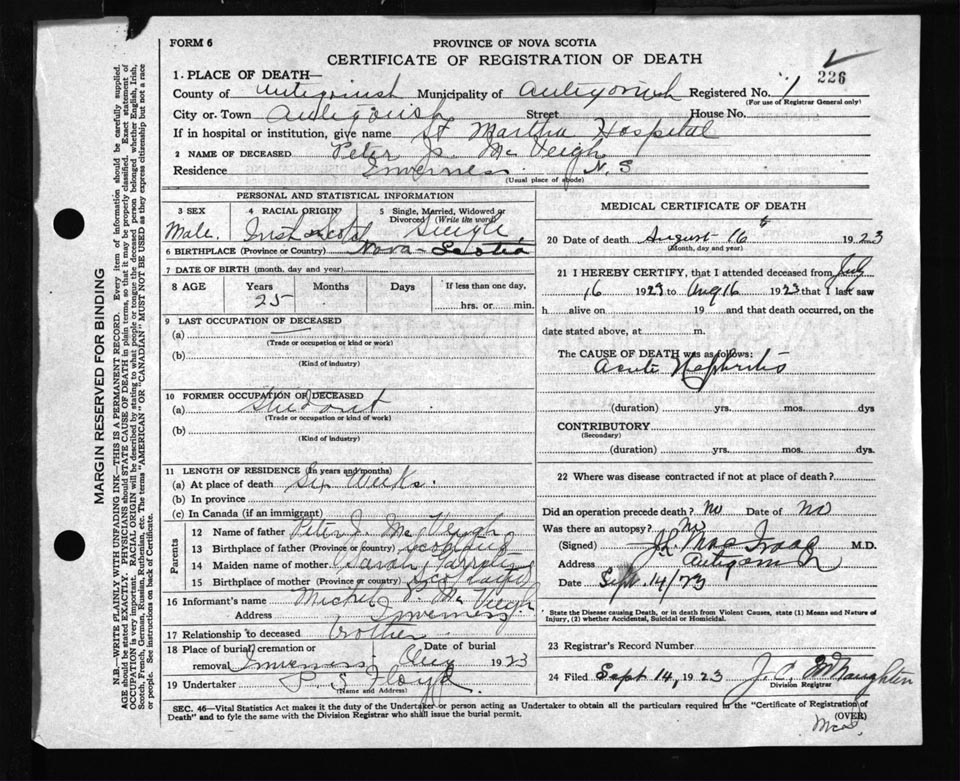 FORM 6
PROVINCE OF NOVA SCOTIA
CERTIFICATE OF REGISTRATION OF DEATH
226
1. PLACE OF DEATH—
County of Antigonish Municipality of Antigonish Registered No. 1
(For use of Registrar General only)
City or Town Antigonish Street House No.
If in hospital or institution, give name St Martha Hospital
2 NAME OF DECEASED Peter J. McVeigh
Residence Inverness N. S
(Usual place of abode)
PERSONAL AND STATISTICAL INFORMATION
3 SEX 4 RACIAL ORIGIN 5 Single, Married, Widowed or Divorced (Write the word)
Male. Irish Scotch Single
6 BIRTHPLACE (Province or Country) Nova-Scotia
7 DATE OF BIRTH (month, day and year)
8 AGE Years Months Days If less than one day,
25 hrs. or min.
9 LAST OCCUPATION OF DECEASED
(a)
(Trade or occupation or kind or work)
(b)
(Kind of industry)
10 FORMER OCCUPATION OF DECEASED
(a) Student
(Trade or occupation or kind of work)
(b)
(Kind of industry)
11 LENGTH OF RESIDENCE (In years and months)
(a) At place of death Six Weeks.
(b) In province
(c) In Canada (if an immigrant)
Parents
12 Name of father Peter J. McVeigh
13 Birthplace of father (Province or country) Scotland
14 Maiden name of mother Sarah
15 Birthplace of mother (Province or country) Scotland
16 Informant's name Michel McVeigh
Address Inverness
17 Relationship to deceased Brother
18 Place of burial, cremation or removal Inverness Date of burial Aug 1923
19 Undertaker P. S. Floyd
(Name and Address)
MEDICAL CERTIFICATE OF DEATH
20 Date of death August 16th 1923
(Month, day and year)
21 I HEREBY CERTIFY, that I attended deceased from July
16 1923 to Aug 16 1923 that I last saw
h alive on 19 and that death occurred, on the
date stated above, at m.
The CAUSE OF DEATH was as follows:
Acute Nephritis
(duration) yrs. mos. dys
CONTRIBUTORY
(Secondary)
(duration) yrs. mos. dys.
22 Where was disease contracted if not at place of death?
Did an operation precede death? No Date of No
Was there an autopsy? No
(Signed) MacIsaac M.D.
Address Antigonish
Date Sept. 14/23
State the Disease causing Death, or in death from Violent Causes, state (1) Means and Nature of
Injury, (2) whether Accidental, Suicidal or Homicidal.
23 Registrar's Record Number
24 Filed Sept 14, 1923 J. C. McNaughton
Division Registrar
SEC. 46—Vital Statistics Act makes it the duty of the Undertaker or person acting as Undertaker to obtain all the particulars required in the "Certificate of Registration of
Death" and to fyle the same with the Division Registrar who shall issue the burial permit.
(OVER)
MARGIN RESERVED FOR BINDING
N.B.—WRITE PLAINLY WITH UNFADING INK—THIS IS A PERMANENT RECORD. Every item of information should be carefully supplied.
AGE should be stated EXACTLY. PHYSICIANS should STATE CAUSE OF DEATH in plain terms, so that it may be properly classified. Exact statement of
OCCUPATION is very important. RACIAL ORIGIN will be described by stating to what people or tongue the deceased person belonged whether English, Irish,
Scotch, French, German, Russian, Ruthenian, etc. The terms "AMERICAN" OR "CANADIAN" MUST NOT BE USED as they express citizenship but not a race
or people. See instructions on back of Certificate.